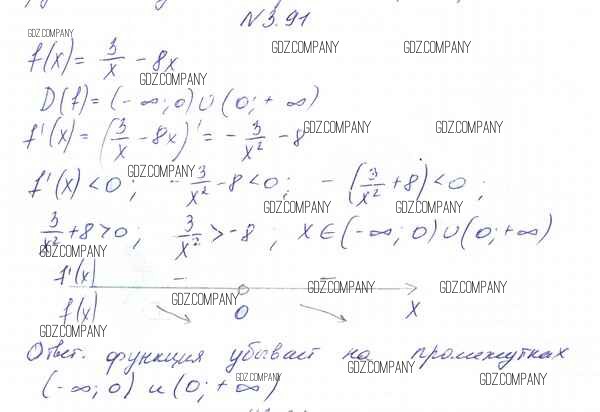 N 3.91
GDZ.COMPANY
GDZ.COMPANY GDZ.COMPANY
f(x) = 3/x - 8x
GDZ.COMPANY
D(f) = (-∞; 0) ∪ (0; +∞)
f'(x) = (3/x - 8x)' = - 3/x² - 8
GDZ.COMPANY GDZ.COMPANY
GDZ.COMPANY
f'(x) < 0; - 3/x² - 8 < 0; - (3/x² + 8) < 0;
GDZ.COMPANY GDZ.COMPANY
3/x² + 8 > 0; 3/x² > -8; x ∈ (-∞; 0) ∪ (0; +∞)
GDZ.COMPANY
f'(x) - -
GDZ.COMPANY GDZ.COMPANY GDZ.COMPANY
f(x) ↘ 0 ↘ x
GDZ.COMPANY
Ответ. функция убывает на промежутках
GDZ.COMPANY GDZ.COMPANY GDZ.COMPANY
(-∞; 0) и (0; +∞)